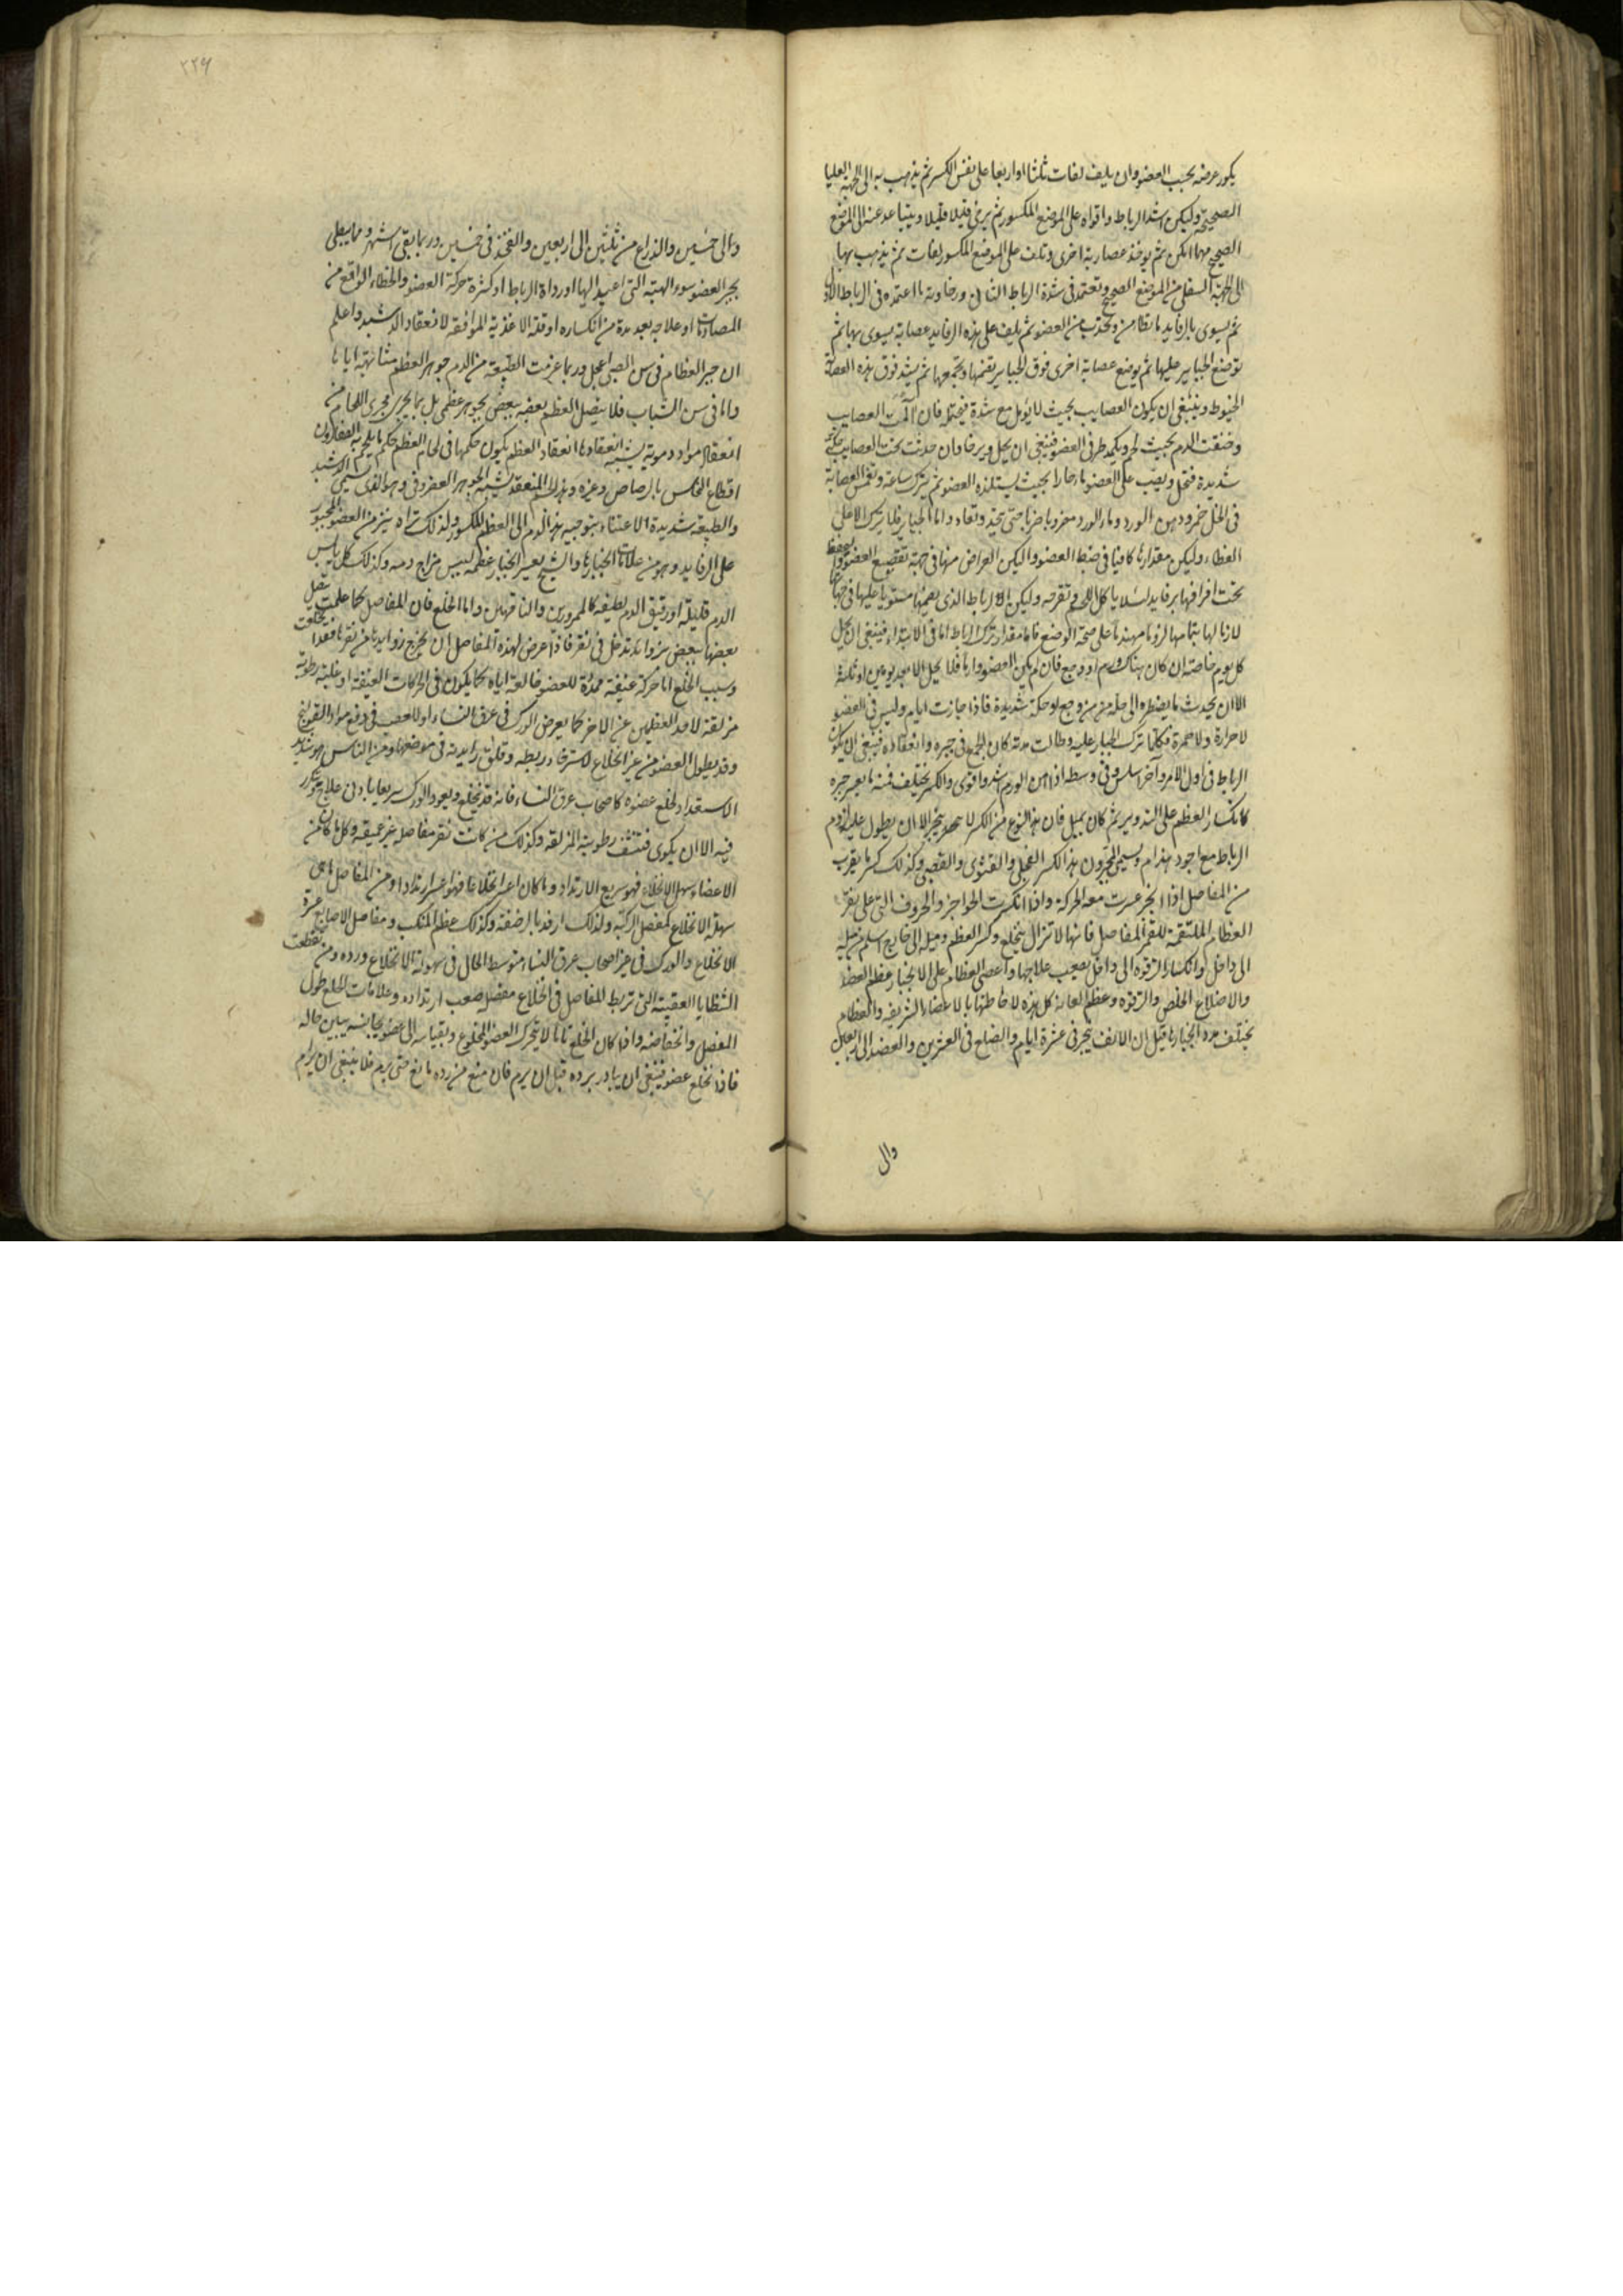 يكون عرضه بحسب العضو وان يلف لفات ثلثا او اربعا على نفس الكسر ثم يذهب به الى الجهة العليا
الصحيحة وليكن اشد الرباط واقواه على الموضع المكسور ثم يرخى قليلا قليلا ويتباعد عنه الى الموضع
الصحيح مهما امكن ثم يوخذ عصابة اخرى وتلف على الموضع المكسور لفات ثم يذهب بها
الى الجهة السفلى من الموضع الصحيح وتعتمد فى شدة الرباط الثانى ورخاوته ما اعتمده فى الرباط الاول
ثم يسوى بالرفايد ما تطامن وتحدب من العضو ثم يلف على هذه الرفايد عصابة يسوى بها ثم
توضع الجباير عليها ثم يوضع عصابة اخرى فوق الجباير يضمها وتجمعها ثم يشد فوق هذه العصابة
الخيوط وينبغى ان يكون العصايب بحيث لا يؤلم مع شدة فيحتمله فان آلمت العصايب
وضغت الدم بحيث لم ويكمد طرفى العضو فينبغى ان يحل ويرخا وان حدثت تحت العصايب حكة
شديدة فتحل ويصب على العضو ماء حارا بحيث يستلذه العضو ثم يترك ساعة وتغمس العصابة
فى الخل خمر ودهن الورد وماء الورد مضروبا حتى تبتل وتعاد واما الجباير فليترك الاعلى
الغطاء وليكن مقدارها كافيا فى ضبط العضو وليكن العراض منها فى جهة تقصيع العضو وليحفظ
تحت اطرافها برفايد لئلا ياكل اللحم وتقرحه وليكن الرباط الذى يضمها مستويا عليها فى جهاتها
لازما لها بتمامها لزوما مهندما على صحة الوضع فاما مقدار ترك الرباط اما فى الابتداء فينبغى ان يحل
كل يوم خاصة ان كان هناك ورم او وجع فان لم يكن العضو وارما فلا يحل الا بعد يومين او ثلثة
الا ان يحدث ما يضطره الى حله من وجع او حكة شديدة فاذا جازت ايام وليس فى العضو
لا حرارة ولا حمرة فكلما تركت الجباير عليه وطالت مدته كان انجع فى جبره وانعقاده فينبغى ان يكون
الرباط فى اول الامر وآخره اسلس وفى وسطه اذا امن الورم اشد واقوى والكسر يختلف فمنه ما يعسر جبره
كانكسار العظم على التدوير ثم كان يميل فان هذا النوع من الكسر لا يجود ينجبر الا ان يطول عليه لزوم
الرباط مع اجود هندام ويسمى المجبرون هذا الكسر الفجلى والقثوى والقصبى وكذلك كسر ما يقرب
من المفاصل اذا انجبر عسرت معه الحركة واذا انكسرت الحواجز والحروف التى على نقر
العظام الملتقمة للقم المفاصل فانها لا تزال ينخلع وكسر العظم وميله الى خارج اسلم من ميله
الى داخل وانكسار الترقوه الى داخل يصعب علاجها واعصى العظام على الانجبار عظم العضد
والاضلاع الخلص والترقوه وعظم العانة كل هذه لاحاطتها بالاعضاء الشريفه والعظام
يختلف مدد انجبارها قيل ان الانف ينجبر فى عشرة ايام والضلع فى العشرين والعضد الى اربعين
والى
٢٢٩
والى خمسين والذراع من ثلثين الى اربعين والفخذ فى خمسين وربما بقى اشهر ومما يبطى
بجبر العضو سوء الهيئة التى اعيد اليها او رداة الرباط او كثرة حركة العضو والخطاء الواقع من
المصادمات او علاجه بعد مدة من انكساره او قلة الاغذية الموافقه لانعقاد الدشبد واعلم
ان جبر العظام فى سن الصبى اعجل وربما عرفت الطبيعة من الدم جوهر العظم مشابهة اياها
واما فى سن الشباب فلا يتصل العظم بعضه ببعض بجوهر عظمى بل بما يجرى مجرى اللحام من
انعقاد مواد دموية يشبه انعقادها انعقاد العظم يكون حكمها فى لحام العظم حكم ما يلحم به الصفارون
اقطاع النحاس بالرصاص وغيره وهذه المنعقدة يشبه الجوهر الغضروفى وهو الذى يسمى الدشبد
والطبيعة شديدة الاعتناء بتوجيه هذا الدم الى العظم المكسور ولذلك تراه ينز من العضو المجبور
على الرفايد وهو من علامات انجبارها والشيخ يعسر انجبار عظمه ليبس مزاج دمه وكذلك كل يابس
الدم قليله او رقيق الدم لطيفه كالممرورين والناقهين واما الخلع فان المفاصل كما علمت يتصل
بعضها ببعض بزوايد تدخل فى نقر فاذا عرض لهذه المفاصل ان يخرج زوايدها من نقرها فقد انخلعت
وسبب الخلع اما حركة عنيفة ممددة للعضو خالعة اياه كما يكون فى الحركات العنيفة او غلبة رطوبة
مزلقة لاحد العظمين عن الاخر كما يعرض الورك فى عرق النساء اولا فى دفع مواد القولنج
وقد يطول العضو من غير انخلاع لاسترخاء ربطه وقلق زايدته فى موضعها ومن الناس من هو شديد
الاستعداد لخلع عضوه كاصحاب عرق النساء فانه قد ينخلع ويعود الورك سريعا بادنى علاج ويتكرر
فيه الا ان يكوى فتنشف رطوبته المزلقه وكذلك من كانت نقر مفاصله غير عميقه وكل ما كان من
الاعضاء سهل الانخلاع فهو سريع الارتداد وما كان اعسر انخلاعا فهو اعسر ارتدادا ومن المفاصل ما هى
سهلة الانخلاع كمفصل الركبة ولذلك ارفد بالرضفة وكذلك عظم المنكب ومفاصل الاصابع عسرة
الانخلاع والورك فى غير اصحاب عرق النساء متوسط الحال فى سهولة الانخلاع ورده ومن تقطعت
الشظايا العقبية التى تربط المفاصل فى انخلاع مفصله صعب ارتداده وعلامات الخلع طول
المفصل وانخفاضه واذا كان الخلع تاما لا يتحرك العضو المخلوع وبقياسه الى عضو يجانسه يبين حاله
فاذا انخلع عضو فينبغى ان يبادر برده قبل ان يرم فان منع من رده مانع حتى يرم فلا ينبغى ان يرام